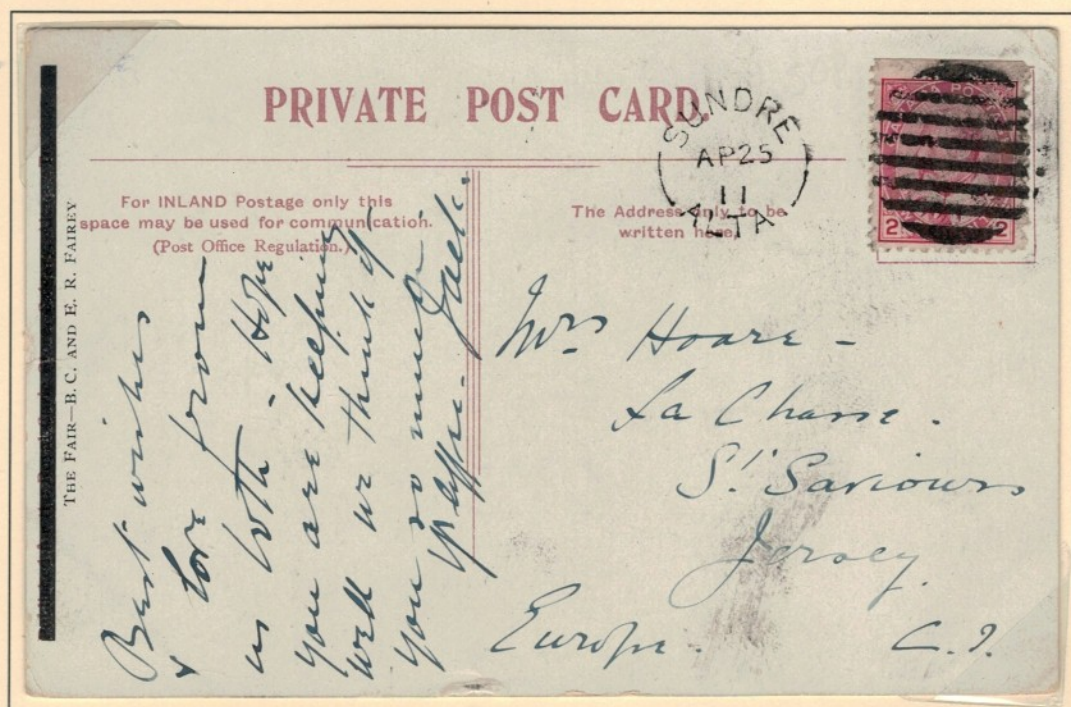 PRIVATE POST CARD.
SUNDRE
AP 25
11
ALTA
2 2
For INLAND Postage only this
space may be used for communication.
(Post Office Regulation.)
The Address only to be
written here.
THE FAIR—B.C. AND E. R. FAIREY
Best wishes
& love from
us both - Hope
you are keeping
well we think of
you so much
Jack.
Mrs Hoare -
La Chasse.
St. Saviours
Jersey.
Europe. C.I.